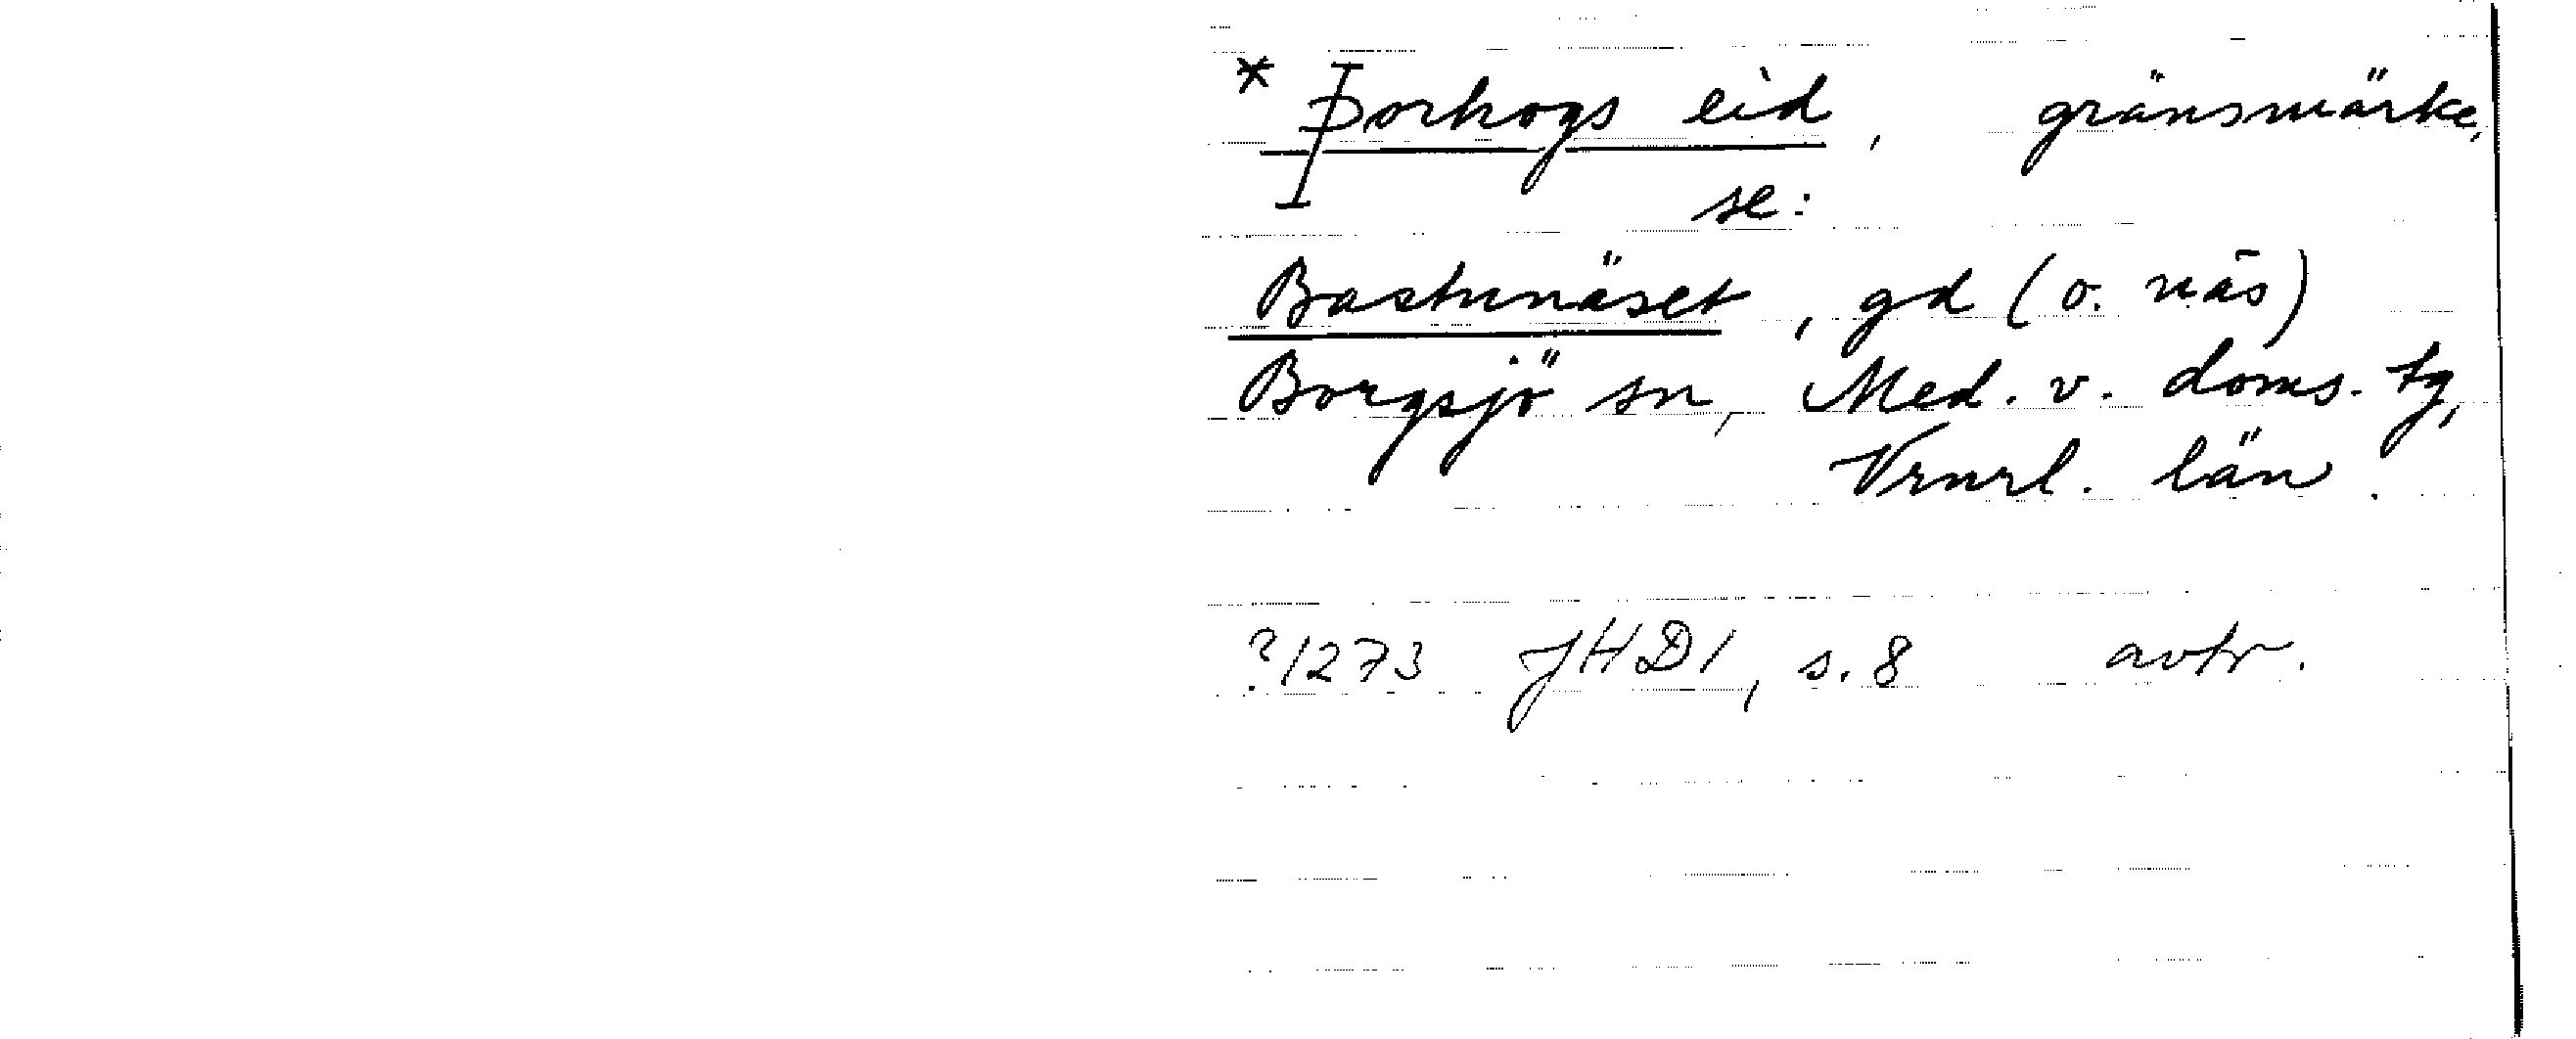 * Þorhogs eid, gränsmärke,
se:
Bastunäset, gd (o. näs)
Borgsjö sn, Med. v. doms. tg,
Vrnrl. län.
?1273 JHD1, s. 8 avtr.